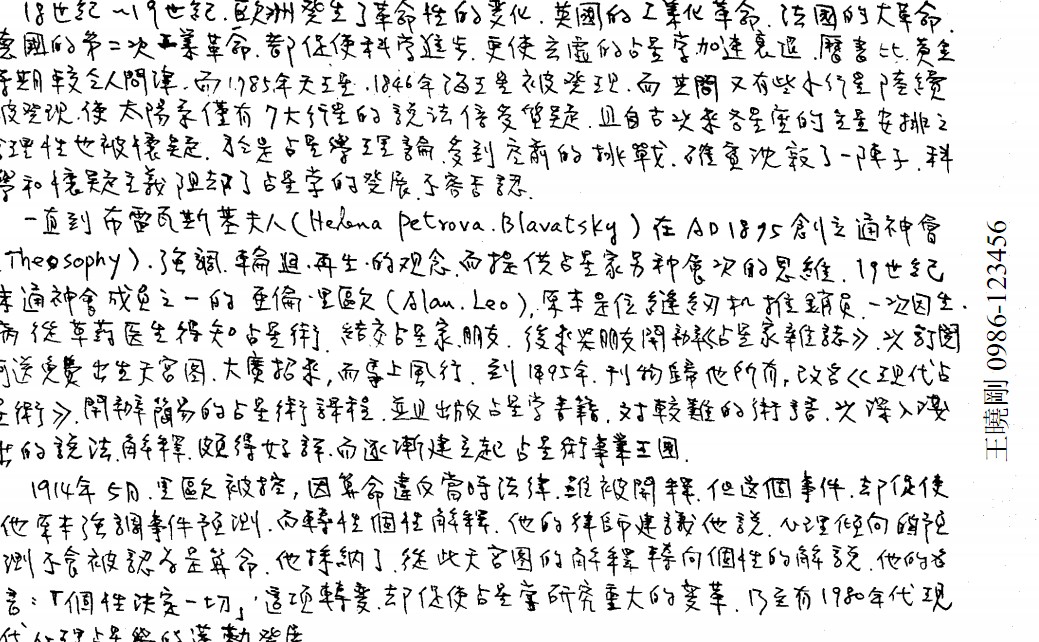 18世紀~19世紀,歐洲發生了革命性的变化,英國的工業化革命,法國的大革命,
國的第二次工業革命,都促使科学進步,更使玄虛的占星学加速衰退,曆書比黃金
時期較乏人問津,而1785年天王星,1846年海王星被發現,而其間又有些小行星陸續
被發現,使太陽系僅有7大行星的說法倍受質疑,且自古以來各星座的主星安排之
合理性也被懷疑,於是占星學理論,受到空前的挑戰,確實沈寂了一陣子,科
學和懷疑主義阻却了占星学的發展不容否認.
一直到布雷瓦斯基夫人(Helena Petrova.Blavatsky)在AD1895創立通神會
(Theosophy),強調.輪迴.再生.的观念,而提供占星家另种層次的思維,19世紀
末通神會成員之一的亚倫.里歐(Alan.Leo),原本是位縫紉机推銷員,一次因生.
病從草葯医生得知占星術,結交占星家朋友,後來與朋友開辦《占星家雜誌》,以訂閱
可送免費出生天宮图,大廣招來,而馬上風行,到1895年,刊物歸他所有,改名《現代占
星術》,開辦簡易的占星術課程,並且出版占星学書籍,对較難的術語,以深入淺
出的說法,解釋,頗得好評,而逐漸建立起占星術事業王國.
1914年5月,里歐被控,因算命違反當時法律,雖被開釋,但这個事件,却促使
他原本強調事件預測,而轉性個性解釋,他的律師建議他說,心理傾向的預
測不會被認為是算命,他採納了,從此天宮图的解釋轉向個性的解說,他的名
言:「個性決定一切」,這項轉變,却促使占星学研究重大的變革,乃至有1980年代現
代心理占星學的蓬勃發展
王曉剛 0986-123456